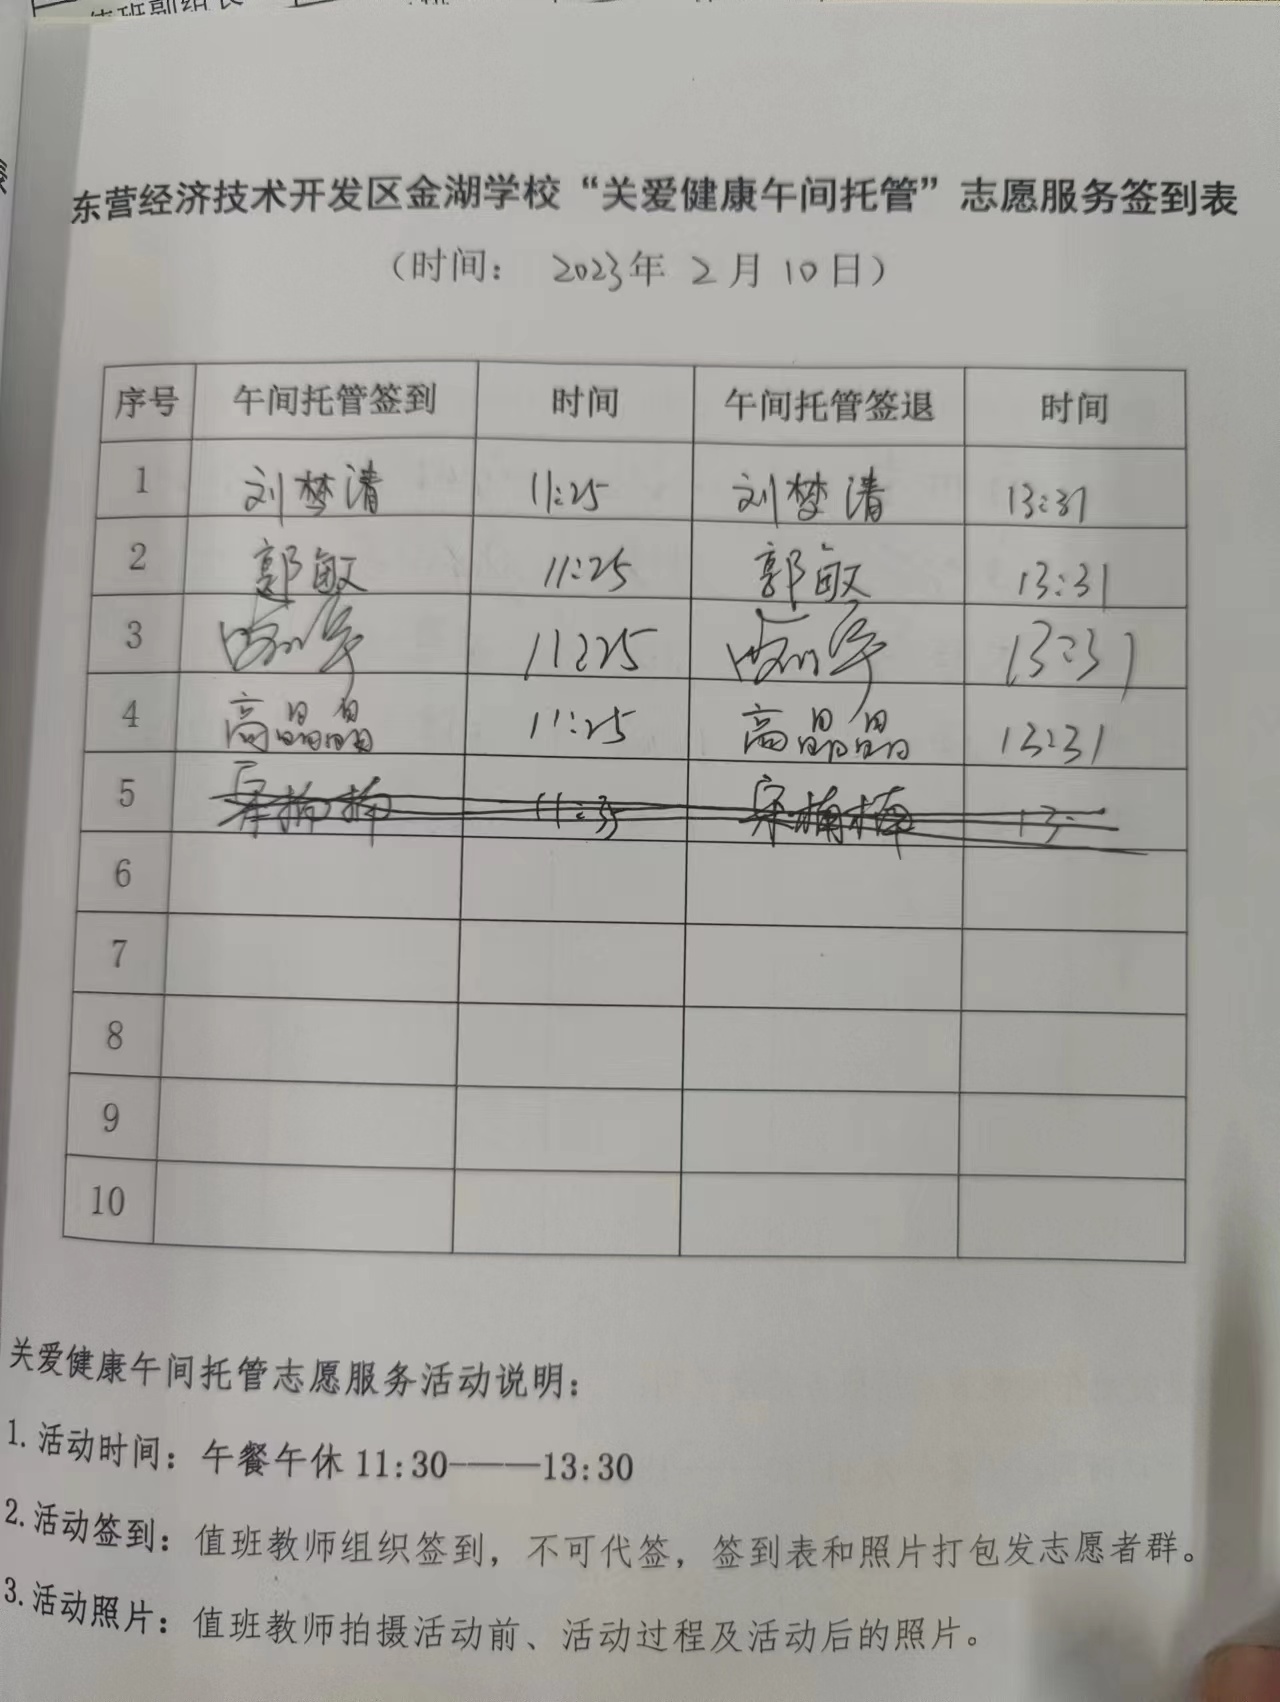 值班副组长
东营经济技术开发区金湖学校“关爱健康午间托管”志愿服务签到表
（时间： 2023年 2月 10日）
序号 午间托管签到 时间 午间托管签退 时间
1 刘梦清 11:25 刘梦清 13:31
2 郭敏 11:25 郭敏 13:31
3 11:25 13:31
4 高晶晶 11:25 高晶晶 13:31
5 11:35 宋楠楠 13:
6
7
8
9
10
关爱健康午间托管志愿服务活动说明：
1.活动时间：午餐午休 11:30——13:30
2.活动签到：值班教师组织签到，不可代签，签到表和照片打包发志愿者群。
3.活动照片：值班教师拍摄活动前、活动过程及活动后的照片。